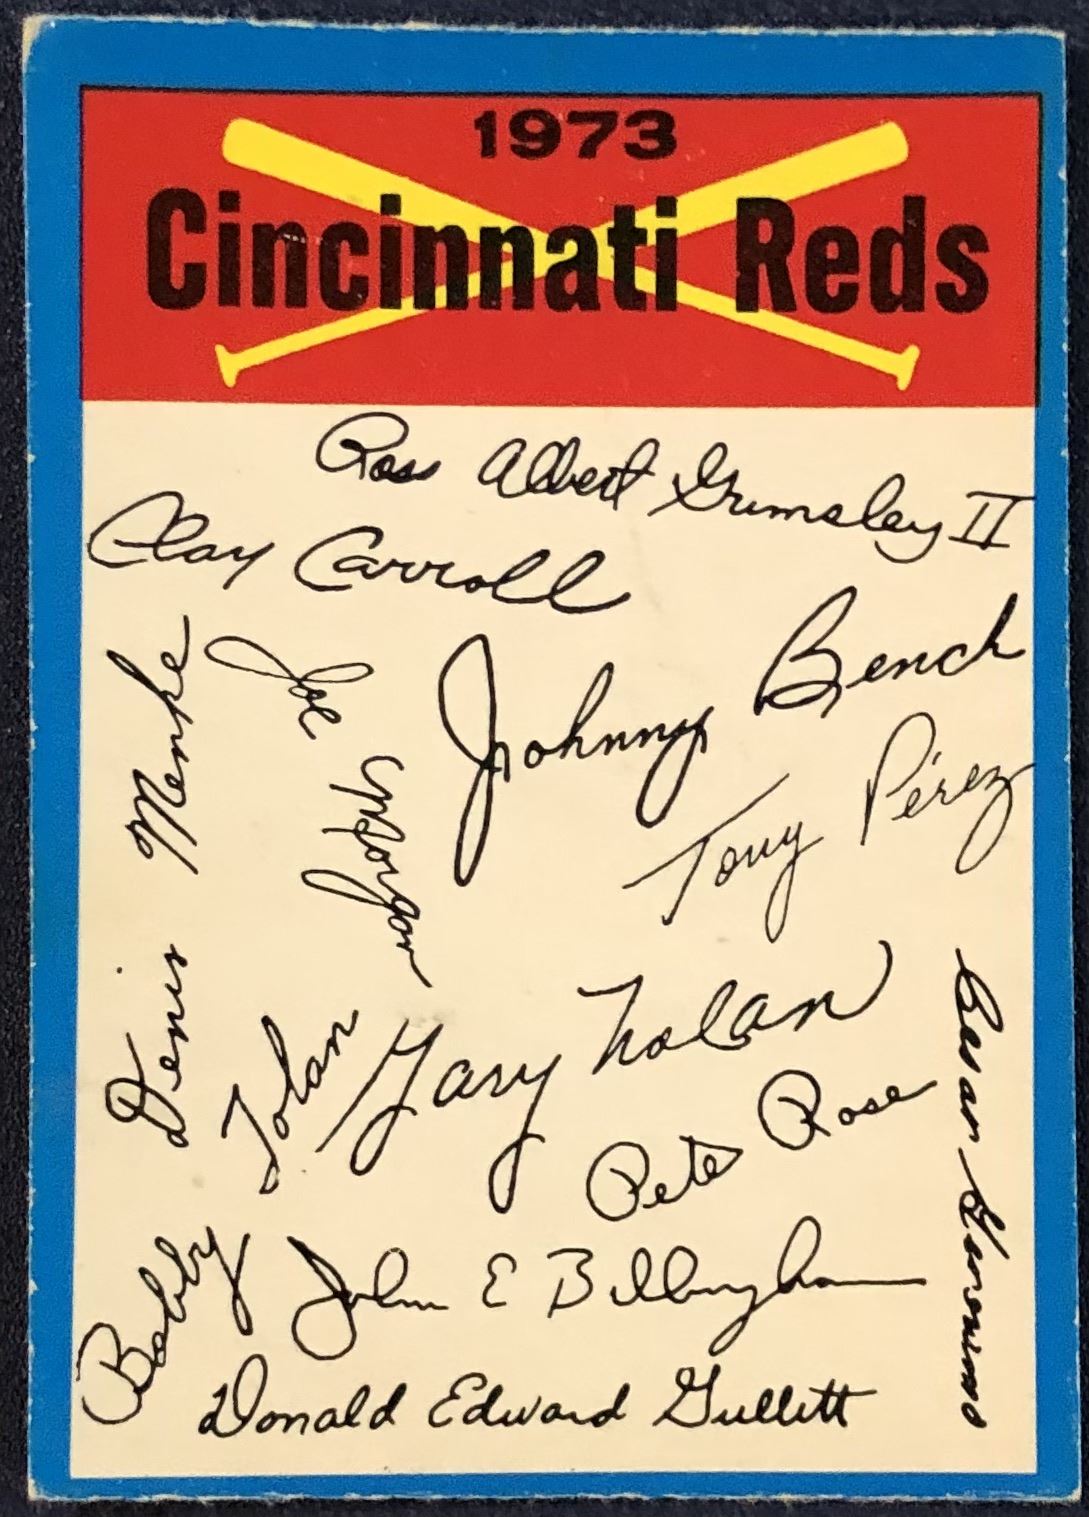 1973
Cincinnati Reds
Ross Albert Grimsley II
Clay Carroll
Johnny Bench
Denis Menke
Joe Morgan
Tony Pérez
Gary Nolan
Cesar Geronimo
Bobby Tolan
Pete Rose
John E Billingham
Donald Edward Gullett